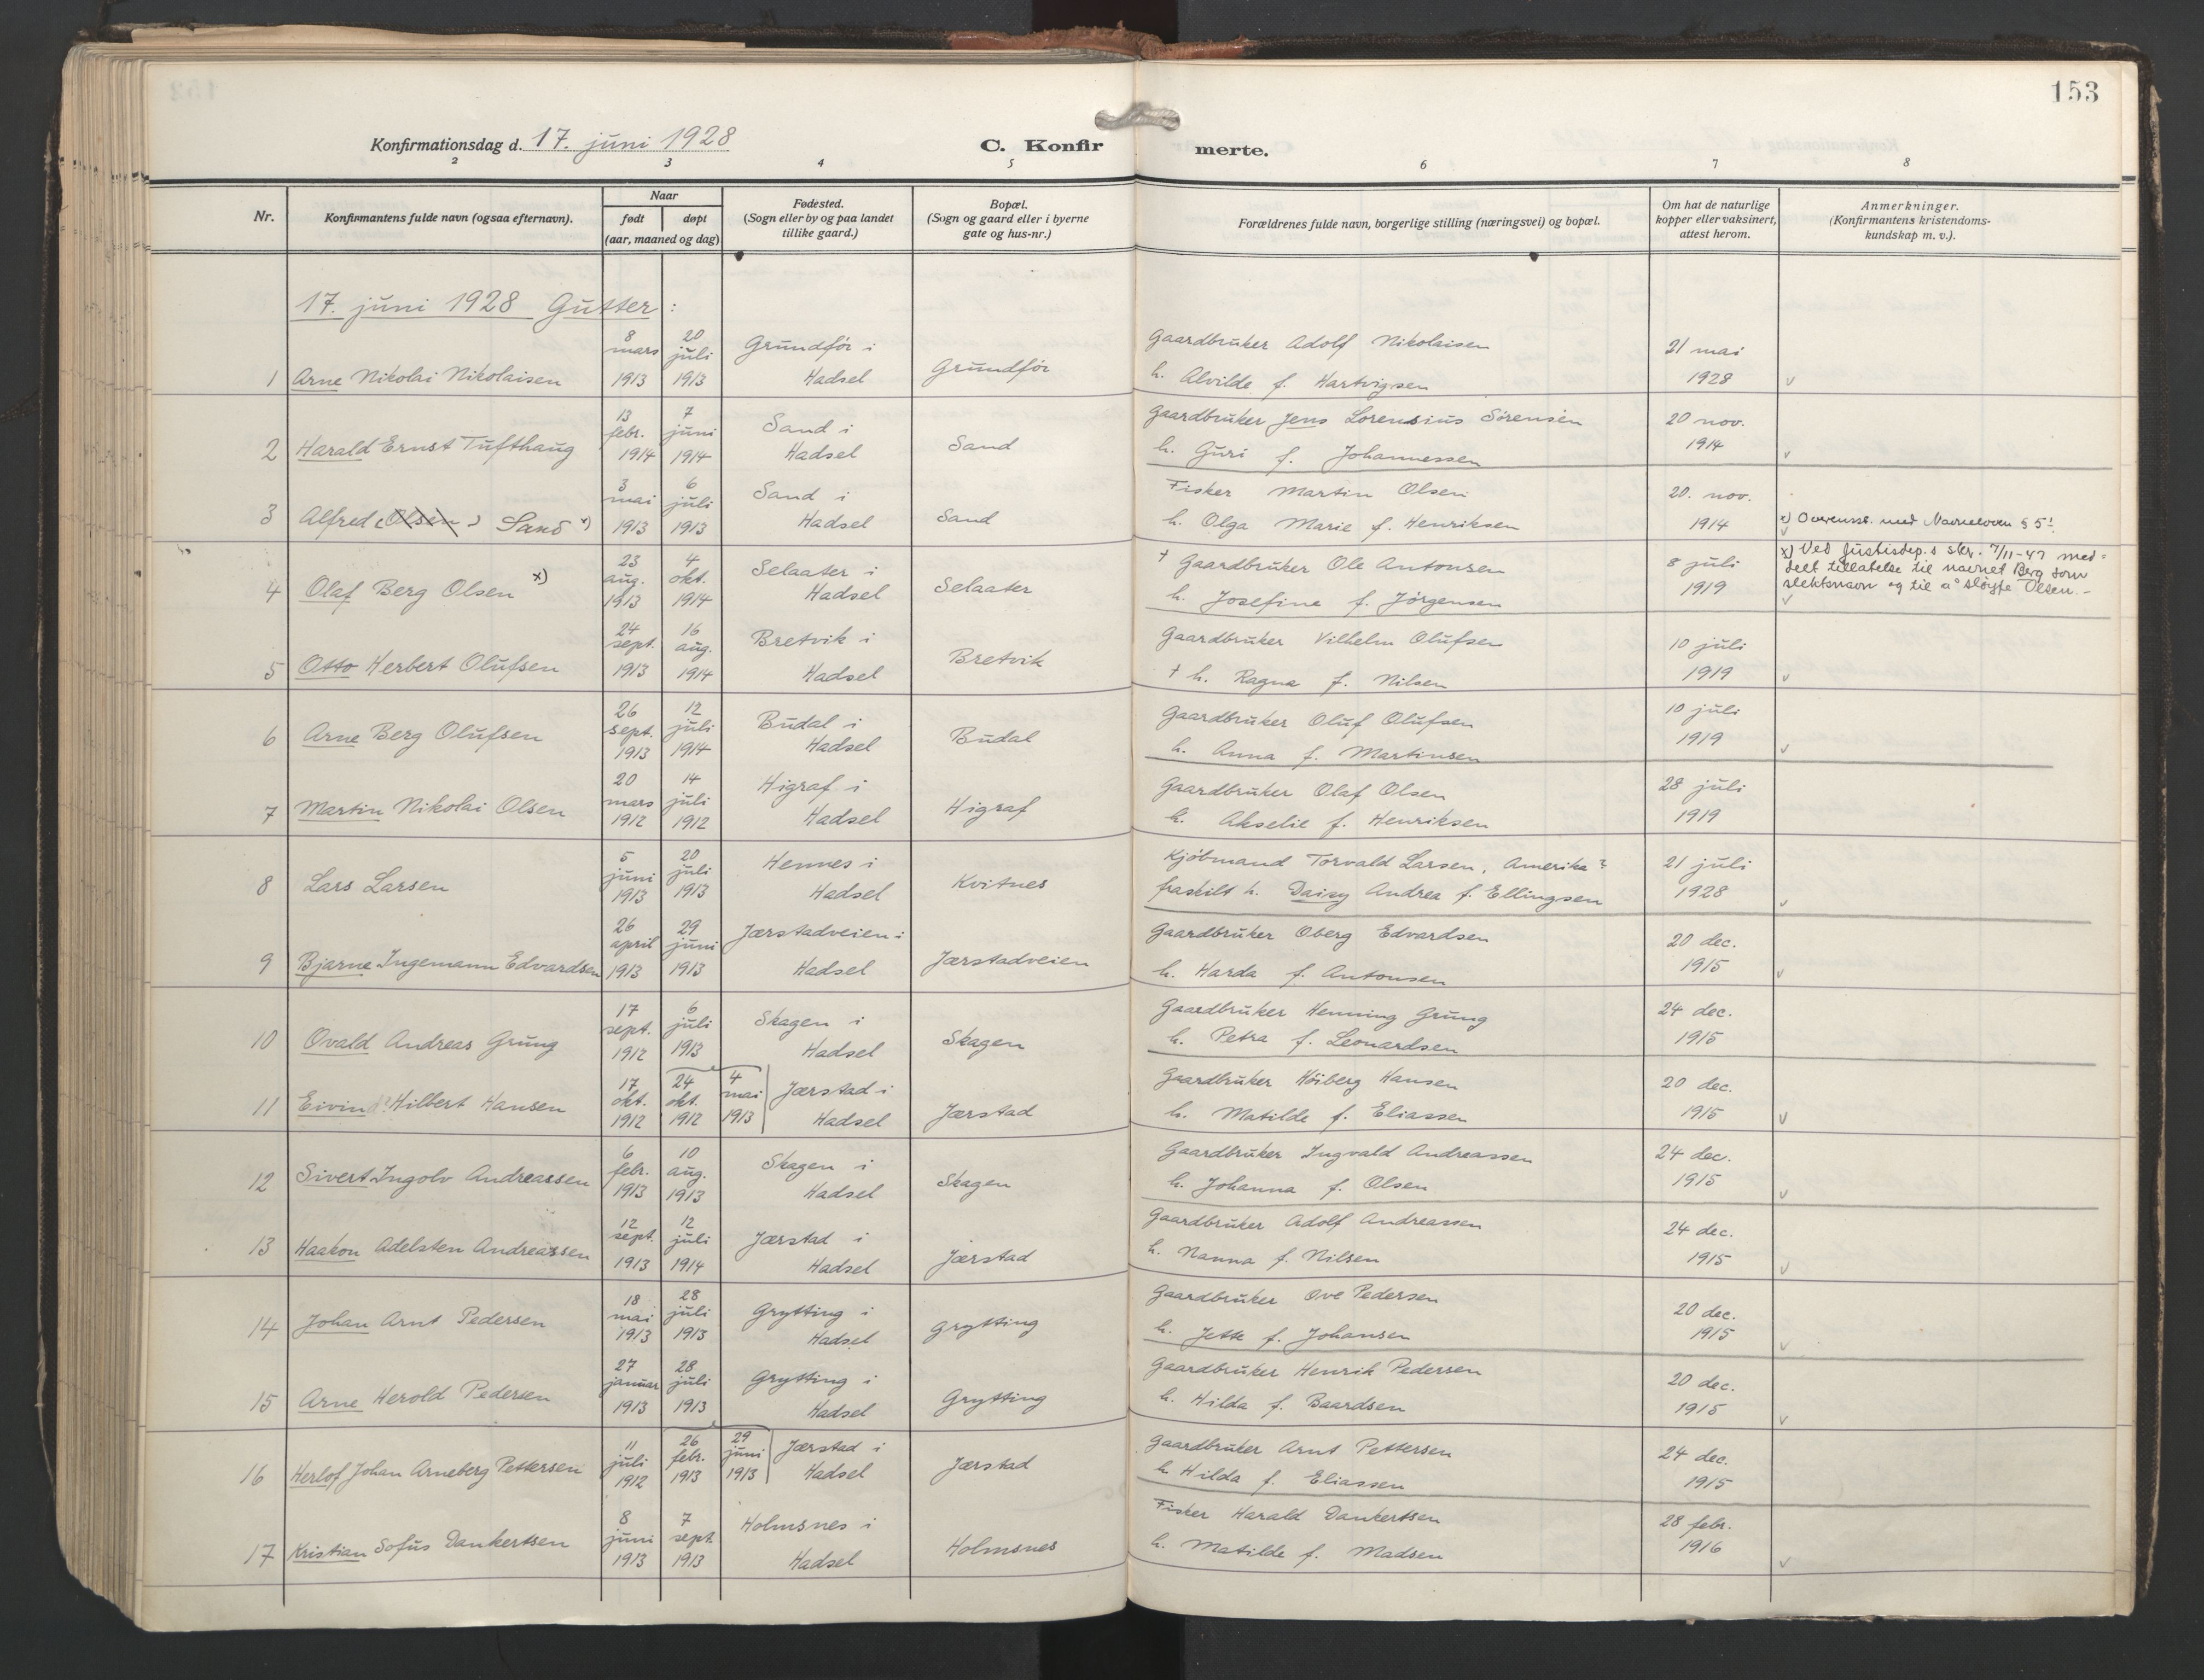 153
Konfirmationsdag d. 17. juni 1928
C. Konfir
merte.
2 3 4 5 6 7 8
Nr.
Konfirmantens fulde navn (ogsaa efternavn).
Naar
født døpt
(aar, maaned og dag)
Fødested.
(Sogn eller by og paa landet
tillike gaard.)
Bopæl.
(Sogn og gaard eller i byerne
gate og hus-nr.)
Forældrenes fulde navn, borgerlige stilling (næringsvei) og bopæl.
Om hat de naturlige
kopper eller vaksinert,
attest herom.
Anmerkninger.
(Konfirmantens kristendoms-
kundskap m. v.).
17. juni 1928 Gutter:
8 20
mars juli Grundfør i Gaardbruker Adolf Nikolaisen 21 mai
1 Arne Nikolai Nikolaisen 1913 1913 Hadsel Grundfør h. Alvilde f. Hartvigsen 1928 v
13 7
febr. juni Sand i Gaardbruker Jens Lorensius Sørensen 20 nov.
2 Harald Ernst Tufthaug 1914 1914 Hadsel Sand h. Guri f. Johannessen 1914 v
3 6
mai juli Sand i Fisker Martin Olsen 20. nov.
3 Alfred (Olsen) Sand x) 1913 1913 Hadsel Sand h. Olga Marie f. Henriksen 1914 x) Overenss. med Navneloven § 5! v
23 4
aug. okt. Selaater i † Gaardbruker Ole Antonsen 8 juli x) Ved Justisdep.s skr. 7/11-47 med=
4 Olaf Berg Olsen x) 1913 1914 Hadsel Selaater h. Josefine f. Jørgensen 1919 delt tillatelse til navnet Berg som
slektsnavn og til å sløyfe Olsen.-
v
24 16
sept. aug. Bretvik i Gaardbruker Vilhelm Olufsen 10 juli
5 Otto Herbert Olufsen 1913 1914 Hadsel Bretvik † h. Ragna f. Nilsen 1919 v
26 12
sept. juli Budal i Gaardbruker Oluf Olufsen 10 juli
6 Arne Berg Olufsen 1913 1914 Hadsel Budal h. Anna f. Martinsen 1919 v
20 14
mars juli Higraf i Gaardbruker Olaf Olsen 28 juli
7 Martin Nikolai Olsen 1912 1912 Hadsel Higraf h. Akselie f. Henriksen 1919
5 20
juni juli Hennes i Kjøbmand Torvald Larsen, Amerika? 21 juli
8 Lars Larsen 1913 1913 Hadsel Kvitnes fraskilt h. Daisy Andrea f. Ellingsen 1928 v
26 29
april juni Jærstadveien i Gaardbruker Oberg Edvardsen 20 dec.
9 Bjarne Ingemann Edvardsen 1913 1913 Hadsel Jærstadveien h. Harda f. Antonsen 1915 v
17 6
sept. juli Skagen i Gaardbruker Henning Grung 24 dec.
10 Ovald Andreas Grung 1912 1913 Hadsel Skagen h. Petra f. Leonardsen 1915
17 24 4
okt. okt. mai Jærstad i Gaardbruker Høiberg Hansen 20 dec.
11 Eivind Hilbert Hansen 1912 1912 1913 Hadsel Jærstad h. Matilde f. Eliassen 1915 v
6 10
febr. aug. Skagen i Gaardbruker Ingvald Andreassen 24 dec.
12 Sivert Ingolv Andreassen 1913 1913 Hadsel Skagen h. Johanna f. Olsen 1915 v
12 12
sept. juli Jærstad i Gaardbruker Adolf Andreassen 24 dec.
13 Haakon Adelsten Andreassen 1913 1914 Hadsel Jærstad h. Nanna f. Nilsen 1915 v
18 28
mai juli Grytting i Gaardbruker Ove Pedersen 20 dec.
14 Johan Arnt Pedersen 1913 1913 Hadsel Grytting h. Jette f. Johansen 1915 v
27 28
januar juli Grytting i Gaardbruker Henrik Pedersen 20 dec.
15 Arne Herold Pedersen 1913 1913 Hadsel Grytting h. Hilda f. Baardsen 1915 v
11 26 29
juli febr. juni Jærstad i Gaardbruker Arnt Pettersen 24 dec.
16 Herlof Johan Arneberg Pettersen 1912 1913 1913 Hadsel Jærstad h. Hilda f. Eliassen 1915
8 7
juni sept. Holmsnes i Fisker Harald Dankertsen 28 febr.
17 Kristian Sofus Dankertsen 1913 1913 Hadsel Holmsnes h. Matilde f. Madsen 1916 v